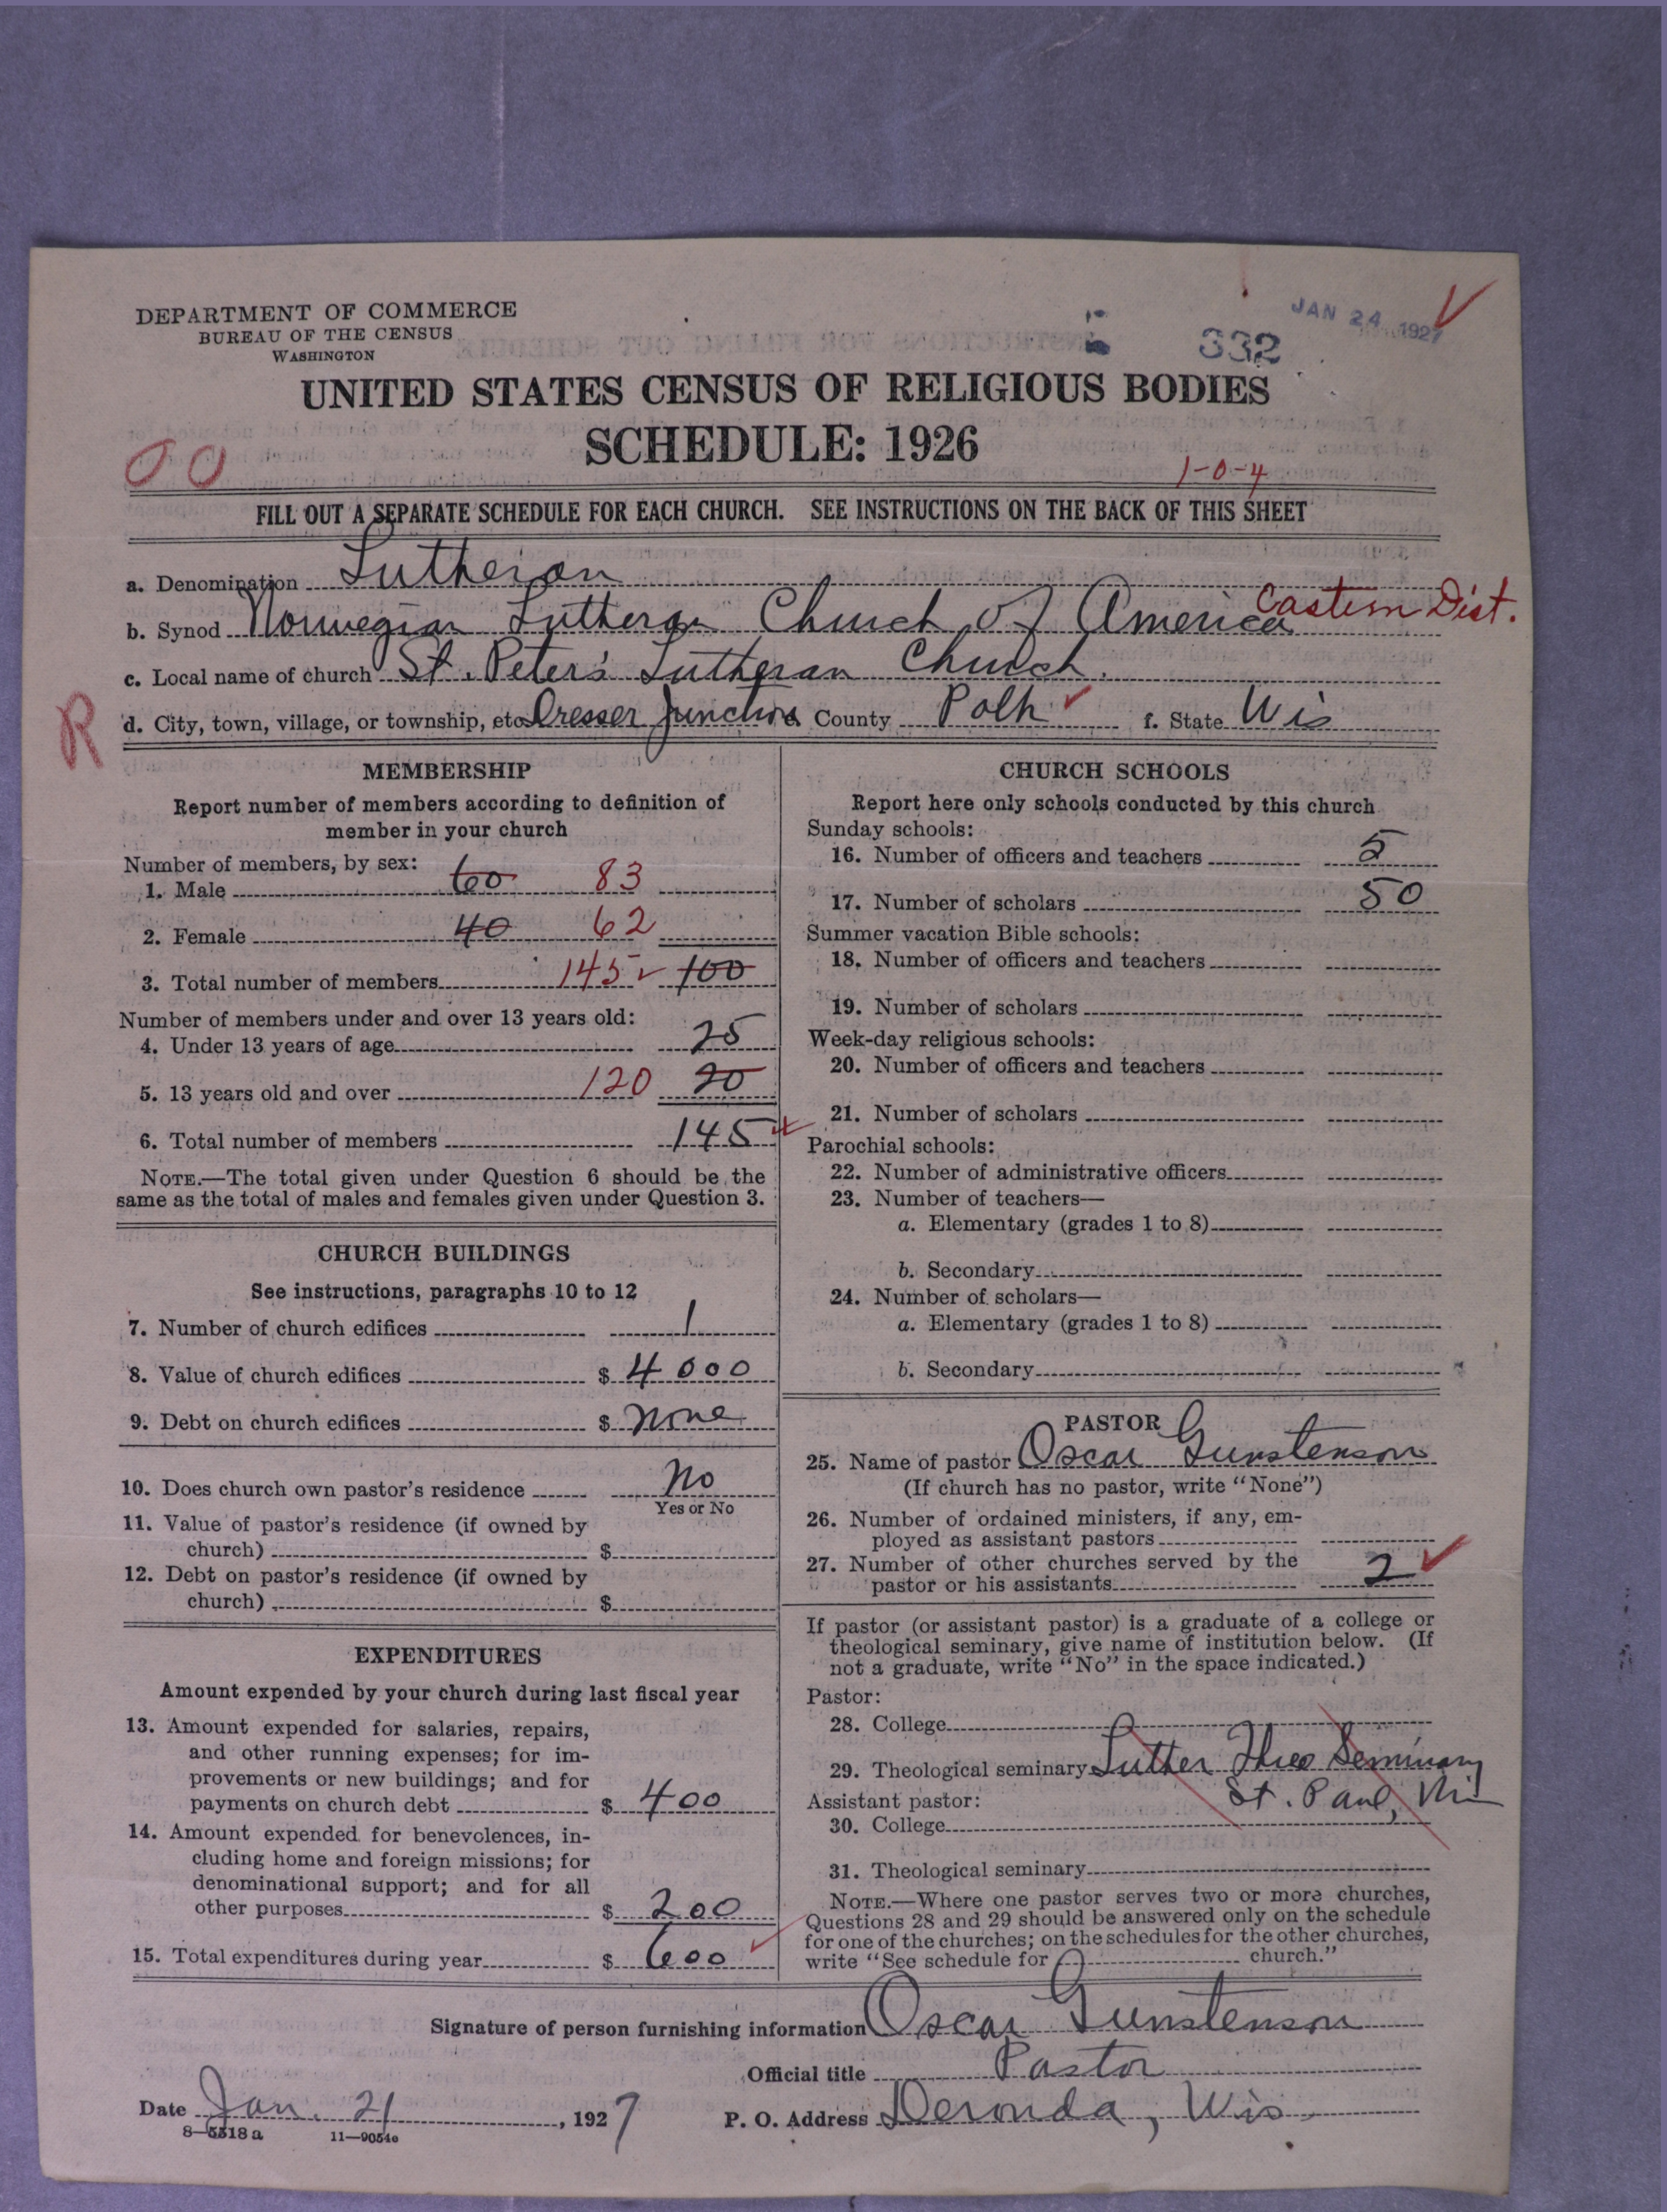 DEPARTMENT OF COMMERCE
BUREAU OF THE CENSUS
WASHINGTON
332
JAN 24 1927
UNITED STATES CENSUS OF RELIGIOUS BODIES
SCHEDULE: 1926
00
1-0-4
FILL OUT A SEPARATE SCHEDULE FOR EACH CHURCH. SEE INSTRUCTIONS ON THE BACK OF THIS SHEET
a. Denomination Lutheran
b. Synod Norwegian Lutheran Church of America Eastern Dist.
c. Local name of church St. Peter's Lutheran Church.
R
d. City, town, village, or township, etc Dresser Junction e. County Polk f. State Wis
MEMBERSHIP
Report number of members according to definition of
member in your church
Number of members, by sex:
1. Male 60 83
2. Female 40 62
3. Total number of members 145 100
Number of members under and over 13 years old:
4. Under 13 years of age 25
5. 13 years old and over 120 20
6. Total number of members 145
NOTE.—The total given under Question 6 should be the
same as the total of males and females given under Question 3.
CHURCH BUILDINGS
See instructions, paragraphs 10 to 12
7. Number of church edifices 1
8. Value of church edifices $ 4000
9. Debt on church edifices $ none
10. Does church own pastor's residence No
Yes or No
11. Value of pastor's residence (if owned by
church) $
12. Debt on pastor's residence (if owned by
church) $
EXPENDITURES
Amount expended by your church during last fiscal year
13. Amount expended for salaries, repairs,
and other running expenses; for im-
provements or new buildings; and for
payments on church debt $ 400
14. Amount expended for benevolences, in-
cluding home and foreign missions; for
denominational support; and for all
other purposes $ 200
15. Total expenditures during year $ 600
CHURCH SCHOOLS
Report here only schools conducted by this church
Sunday schools:
16. Number of officers and teachers 5
17. Number of scholars 50
Summer vacation Bible schools:
18. Number of officers and teachers
19. Number of scholars
Week-day religious schools:
20. Number of officers and teachers
21. Number of scholars
Parochial schools:
22. Number of administrative officers
23. Number of teachers—
a. Elementary (grades 1 to 8)
b. Secondary
24. Number of scholars—
a. Elementary (grades 1 to 8)
b. Secondary
PASTOR
25. Name of pastor Oscar Gunstenson
(If church has no pastor, write "None")
26. Number of ordained ministers, if any, em-
ployed as assistant pastors
27. Number of other churches served by the
pastor or his assistants 2
If pastor (or assistant pastor) is a graduate of a college or
theological seminary, give name of institution below. (If
not a graduate, write "No" in the space indicated.)
Pastor:
28. College
29. Theological seminary Luther Theo Seminary
St. Paul, Min
Assistant pastor:
30. College
31. Theological seminary
NOTE.—Where one pastor serves two or more churches,
Questions 28 and 29 should be answered only on the schedule
for one of the churches; on the schedules for the other churches,
write "See schedule for church."
Signature of person furnishing information Oscar Gunstenson
Official title Pastor
Date Jan. 21, 1927 P. O. Address Deronda, Wis.
8—5518 a 11—9054e